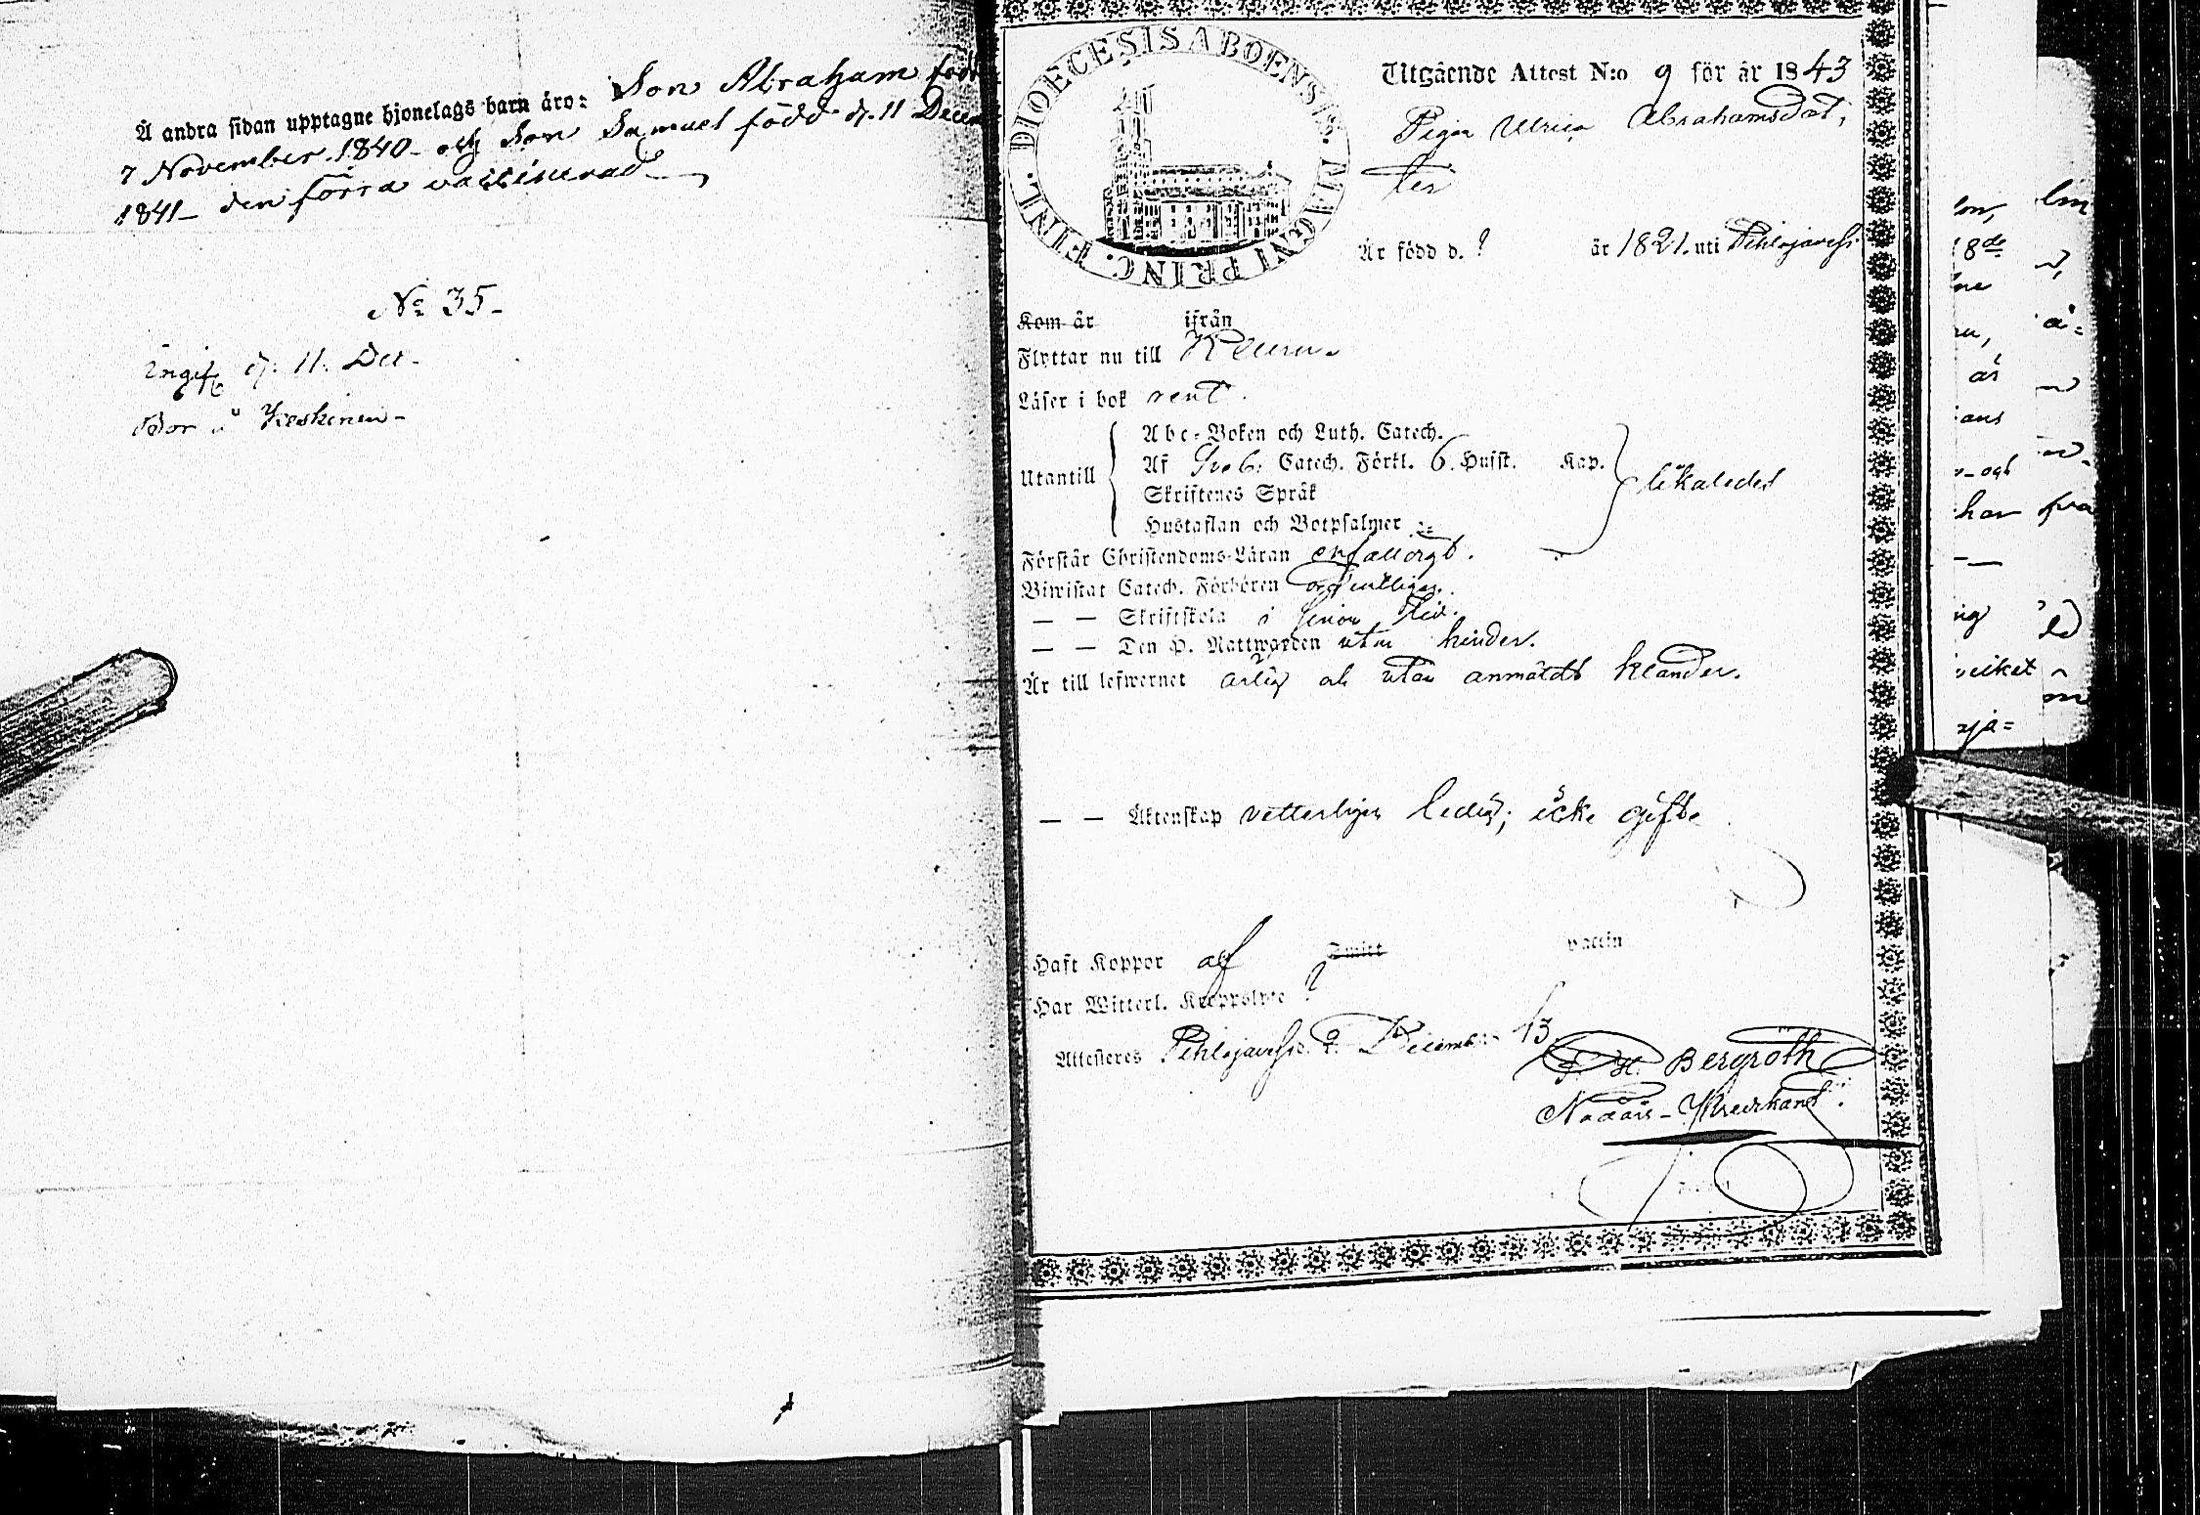 Å andra sidan upptagne hjonelags barn äro: Son Abraham född
7 November 1840 - och Son Samuel född d. 11 Decem
1841 - den förra vaccinerad
No 35 -
Ingif d. 11. Dec -
Bor i Keskinen -
DIOECESIS ABOENSIS. MAGNI PRINC. FINL.
Utgående Attest N:o 9 för år 1843
Pigan Ulrica Abrahamsdot,
ter
Är född d. ? år 1821. uti Pihlajavesi
Kom år ifrån
Flyttar nu till Keuru.
Läser i bok rent.
Utantill
Abc-Boken och Luth. Catech.
Af Sveb: Catech. Förkl. 6. Husst. Kap.
Skriftenes Språk
Hustaflan och Botpsalmer
likaledes
Förstår Christendoms-Läran enfalldigt.
Biwistat Catech. Förhören ordentligen.
— — Skriftskola i sinom tid.
— — Den H. Nattwarden utan hinder.
Är till lefwernet ärlig och utan anmäldt klander.
— — Äktenskap vetterligen ledig; icke gift.
Haft Koppor af Smitt vaccin
Har Witterl. Kroppslyte ?
Attesteras Pihlajavesi d. 2. December 43
Bergroth
Nådårs-Predikant.